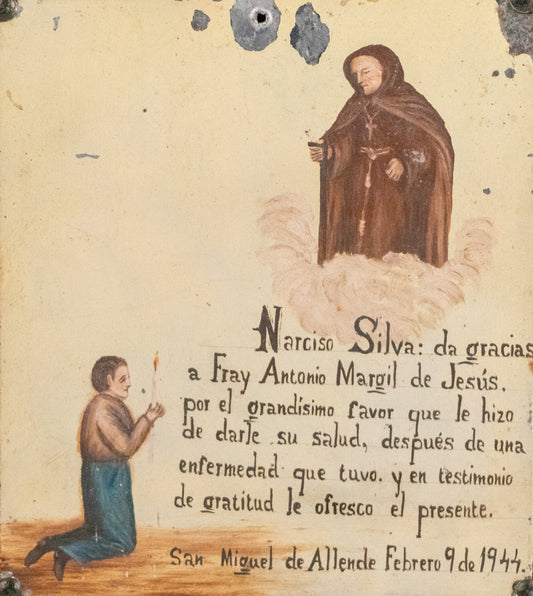 Narciso Silva: da gracias
a Fray Antonio Margil de Jesús.
por el grandísimo favor que le hizo
de darle su salud, después de una
enfermedad que tuvo. y en testimonio
de gratitud le ofresco el presente.
San Miguel de Allende Febrero 9 de 1944.